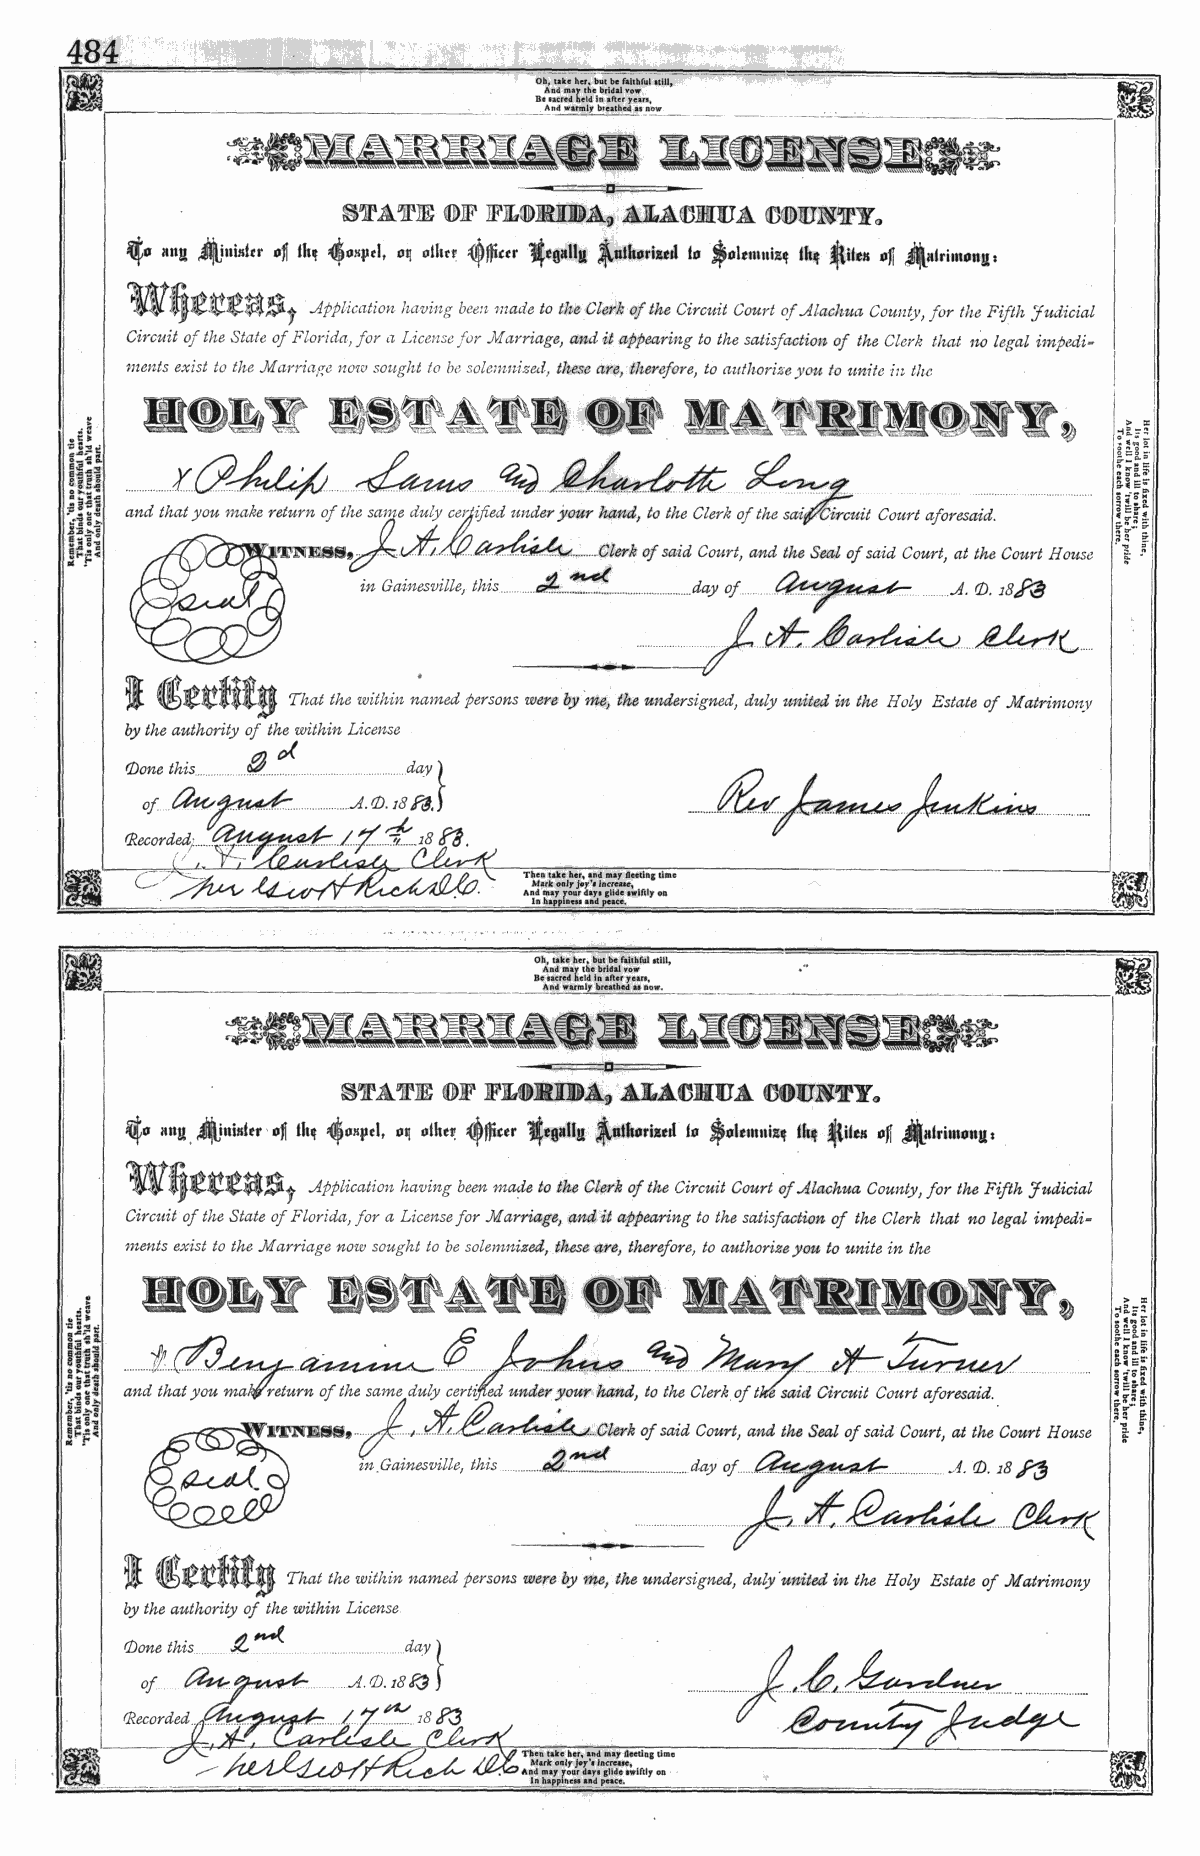 484
Oh, take her, but be faithful still,
And may the bridal vow
Be sacred held in after years,
And warmly breathed as now
MARRIAGE LICENSE
STATE OF FLORIDA, ALACHUA COUNTY.
To any Minister of the Gospel, or other Officer Legally Authorized to Solemnize the Rites of Matrimony:
Whereas, Application having been made to the Clerk of the Circuit Court of Alachua County, for the Fifth Judicial
Circuit of the State of Florida, for a License for Marriage, and it appearing to the satisfaction of the Clerk that no legal impedi-
ments exist to the Marriage now sought to be solemnized, these are, therefore, to authorize you to unite in the
HOLY ESTATE OF MATRIMONY,
Philip Sams and Charlotte Long
and that you make return of the same duly certified under your hand, to the Clerk of the said Circuit Court aforesaid.
WITNESS, J A. Carlisle Clerk of said Court, and the Seal of said Court, at the Court House
seal
in Gainesville, this 2nd day of August A. D. 1883
J. A. Carlisle Clerk
I Certify That the within named persons were by me, the undersigned, duly united in the Holy Estate of Matrimony
by the authority of the within License
Done this 2d day
of August A.D. 1883.
Rev James Jenkins
Recorded August 17th 1883.
J. A. Carlisle Clerk
Per Geo H Rich D.C.
Remember, 'tis no common tie
That binds our youthful hearts.
'Tis only one that truth sh'ld weave
And only death should part.
Her lot in life is fixed with thine,
Its good and ill to share;
And well I know 'twill be her pride
To soothe each sorrow there.
Then take her, and may fleeting time
Mark only joy's increase,
And may your days glide swiftly on
In happiness and peace.
Oh, take her, but be faithful still,
And may the bridal vow
Be sacred held in after years,
And warmly breathed as now.
MARRIAGE LICENSE
STATE OF FLORIDA, ALACHUA COUNTY.
To any Minister of the Gospel, or other Officer Legally Authorized to Solemnize the Rites of Matrimony:
Whereas, Application having been made to the Clerk of the Circuit Court of Alachua County, for the Fifth Judicial
Circuit of the State of Florida, for a License for Marriage, and it appearing to the satisfaction of the Clerk that no legal impedi-
ments exist to the Marriage now sought to be solemnized, these are, therefore, to authorize you to unite in the
HOLY ESTATE OF MATRIMONY,
Benjamine E Johns and Mary A Turner
and that you make return of the same duly certified under your hand, to the Clerk of the said Circuit Court aforesaid.
WITNESS, J. A. Carlisle Clerk of said Court, and the Seal of said Court, at the Court House
seal
in Gainesville, this 2nd day of August A. D. 1883
J. A. Carlisle Clerk
I Certify That the within named persons were by me, the undersigned, duly united in the Holy Estate of Matrimony
by the authority of the within License
Done this 2nd day
of August A.D. 1883
J. C. Gardner
County Judge
Recorded August 17th 1883
J. A. Carlisle Clerk
Per Geo H Rich D.C.
Remember, 'tis no common tie
That binds our youthful hearts.
'Tis only one that truth sh'ld weave
And only death should part.
Her lot in life is fixed with thine,
Its good and ill to share;
And well I know 'twill be her pride
To soothe each sorrow there.
Then take her, and may fleeting time
Mark only joy's increase,
And may your days glide swiftly on
In happiness and peace.